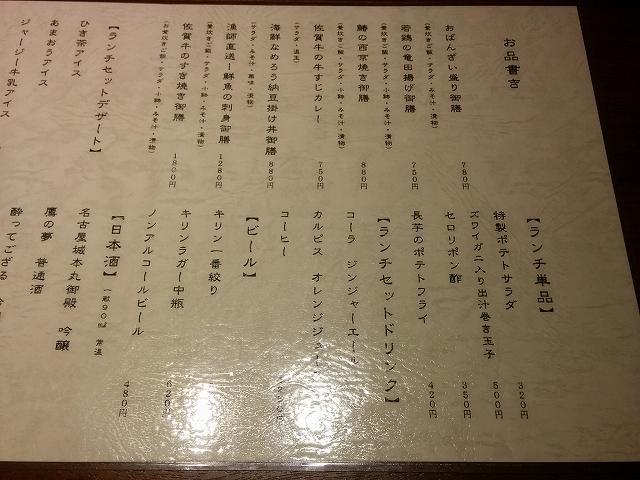 お品書き
おばんざい盛り御膳 780円
(釜炊きご飯・サラダ・みそ汁・漬物)
若鶏の竜田揚げ御膳 750円
(釜炊きご飯・サラダ・小鉢・みそ汁・漬物)
鰆の西京焼き御膳 880円
(釜炊きご飯・サラダ・小鉢・みそ汁・漬物)
佐賀牛の牛すじカレー 750円
(サラダ・温玉)
海鮮なめろう納豆掛け丼御膳 880円
(サラダ・みそ汁・薬味・漬物)
漁師直送!鮮魚の刺身御膳 1280円
(釜炊きご飯・サラダ・小鉢・みそ汁・漬物)
佐賀牛のすき焼き御膳 1800円
(お釜炊きご飯・サラダ・小鉢・みそ汁・漬物)
【ランチセットデザート】
ひき茶アイス
あまおうアイス
ジャージー牛乳アイス
【ランチ単品】
特製ポテトサラダ 320円
ズワイガニ入り出汁巻き玉子 500円
セロリポン酢 350円
長芋のポテトフライ 420円
【ランチセットドリンク】
コーラ ジンジャーエール
カルピス オレンジジュース
コーヒー
【ビール】
キリン一番絞り
キリンラガー中瓶
ノンアルコールビール 480円
【日本酒】 一合90ml 常温
名古屋城本丸御殿 吟醸
鷹の夢 普通酒
酔ってござる